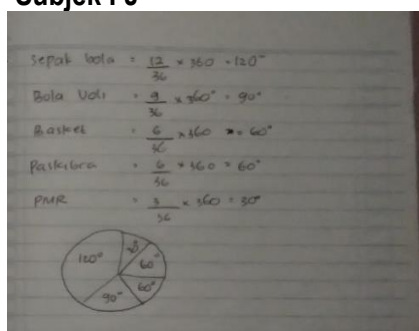 Sepak bola = 12/36 × 360 = 120°
Bola Voli = 9/36 × 360° = 90°
Basket = 6/36 × 360 = 60°
Paskibra = 6/36 × 360 = 60°
PMR = 3/36 × 360 = 30°
120° 30 60°
90° 60°